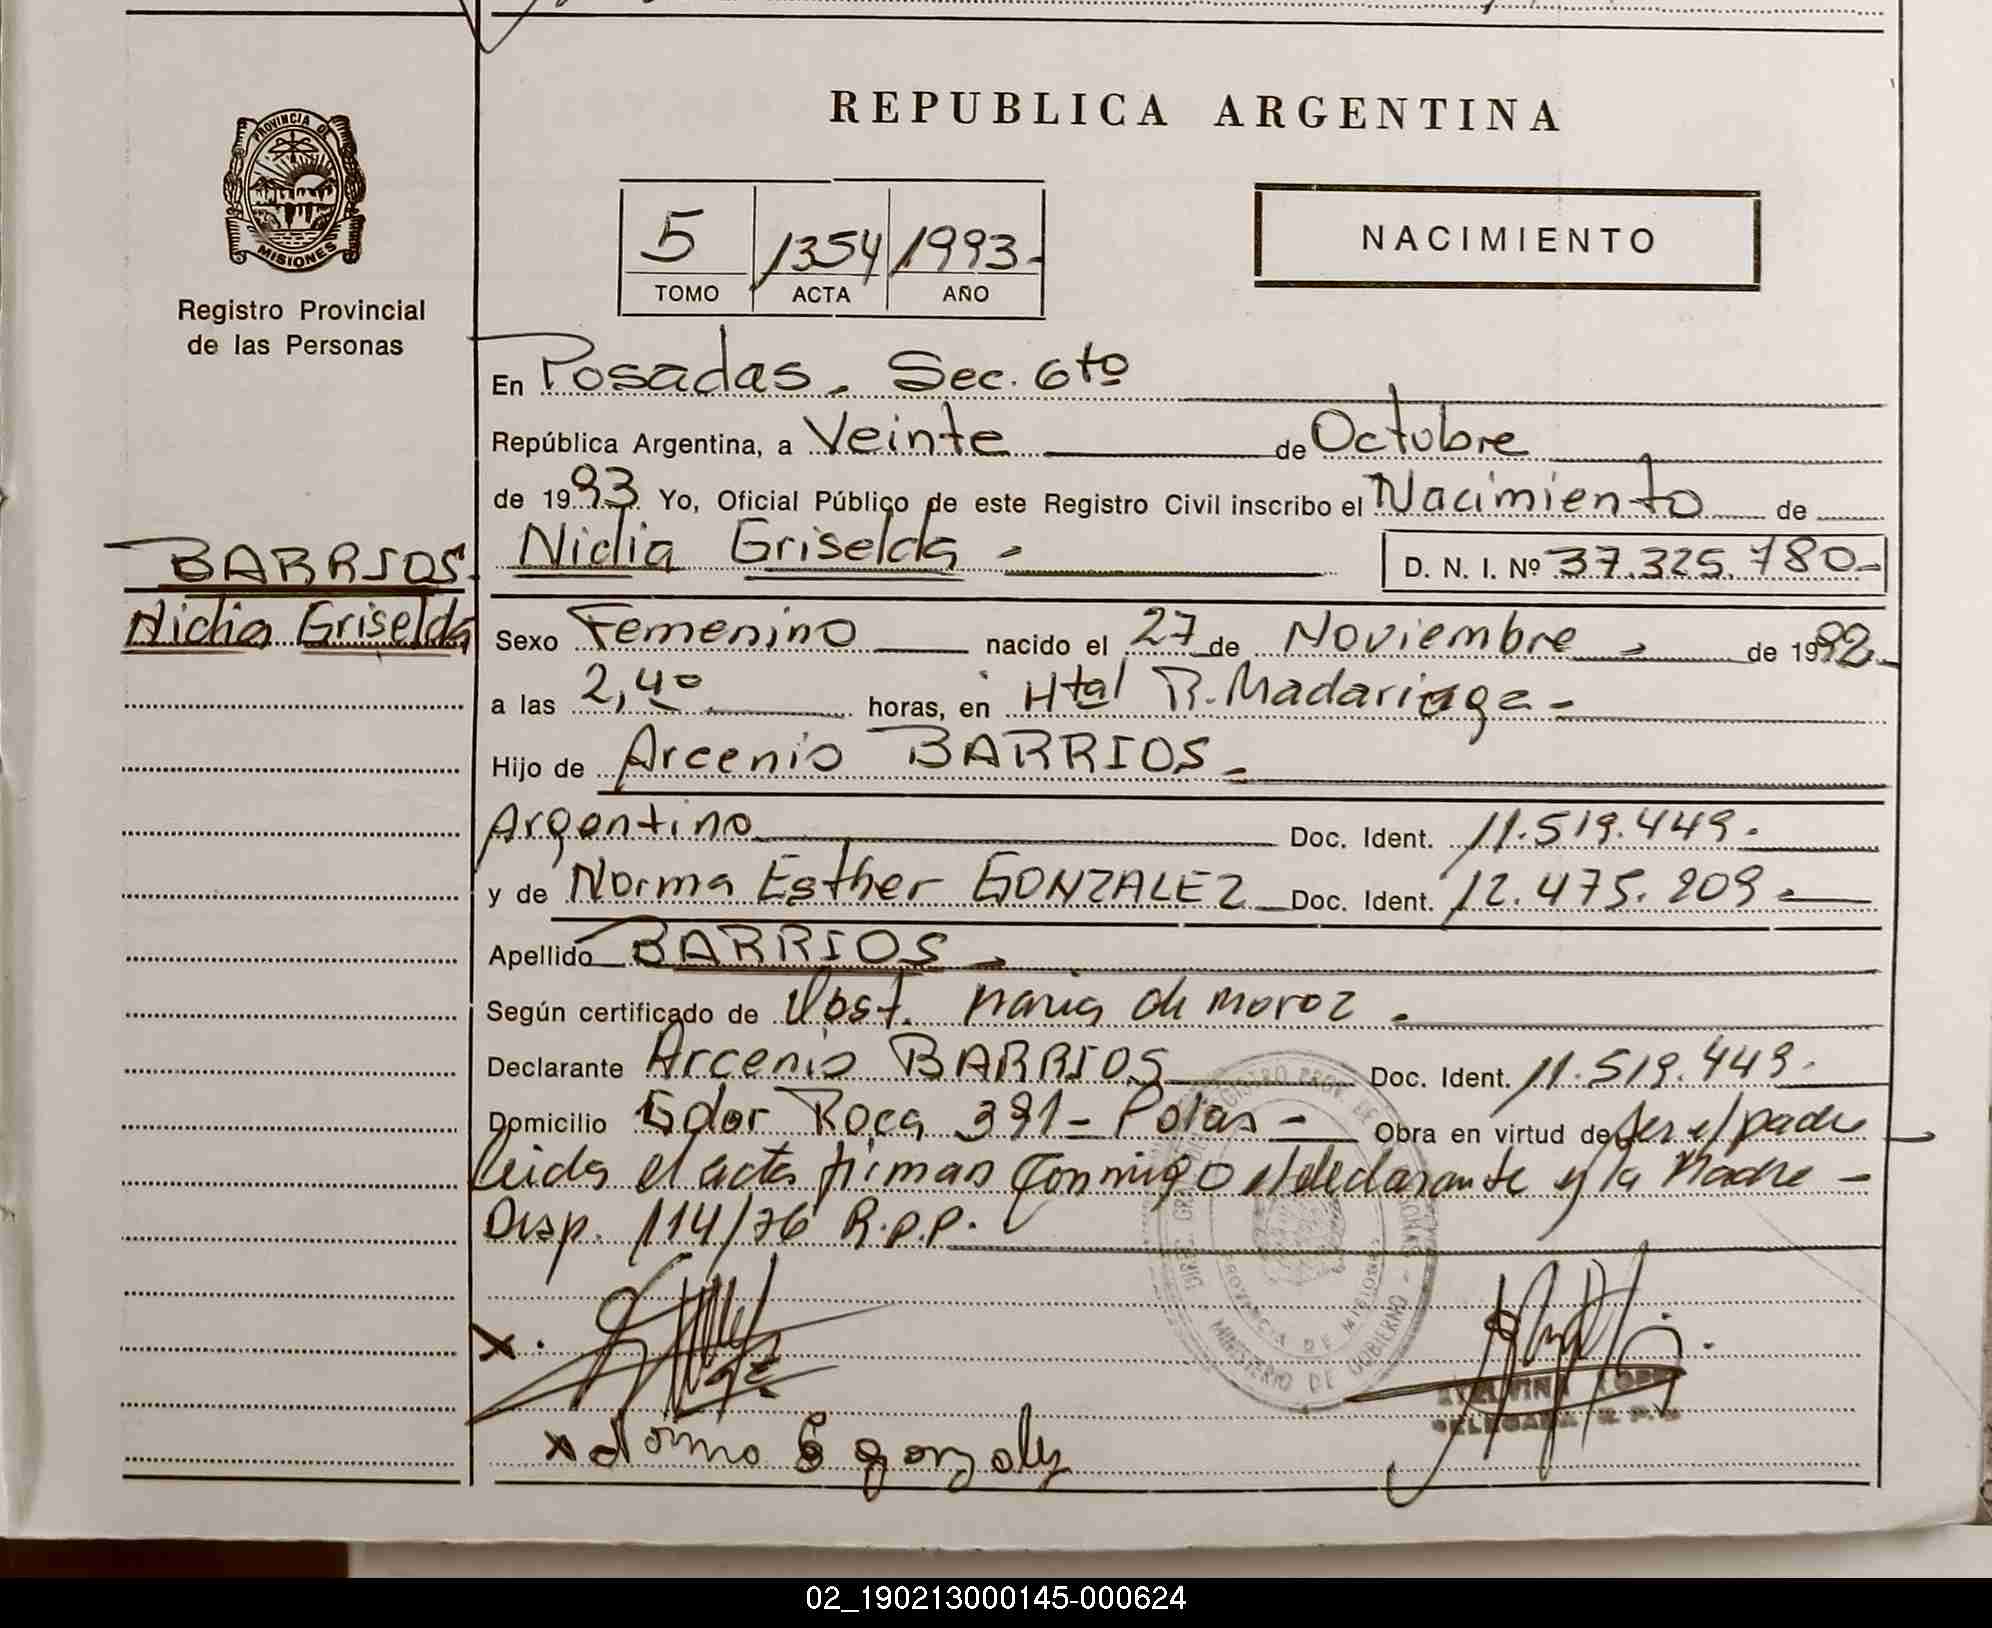 PROVINCIA DE
MISIONES
Registro Provincial
de las Personas
REPUBLICA ARGENTINA
5 1354 1993.
TOMO ACTA AÑO
NACIMIENTO
En Posadas. Sec. 6to
República Argentina, a Veinte de Octubre
de 1993 Yo, Oficial Público de este Registro Civil inscribo el Nacimiento de
BARRIOS
Nidia Griselda
Nidia Griselda - D. N. I. Nº 37.325.780-
Sexo Femenino nacido el 27 de Noviembre de 1992.
a las 2,40 horas, en Htal R. Madariaga -
Hijo de Arcenio BARRIOS -
Argentino Doc. Ident. 11.519.449.
y de Norma Esther GONZALEZ Doc. Ident. 12.475.209
Apellido BARRIOS
Según certificado de Obst. Maria de Moroz.
Declarante Arcenio BARRIOS Doc. Ident. 11.519.449.
Domicilio Gdor Roca 391 - Pdas - Obra en virtud de Ser el padre
leida el acta firman conmigo el declarante y la Madre -
Disp. 114/76 R.P.P.
REGISTRO PROV. DE
PROVINCIA DE MISIONES
MINISTERIO DE GOBIERNO
X.
x Norma E gonzalez
02_190213000145-000624